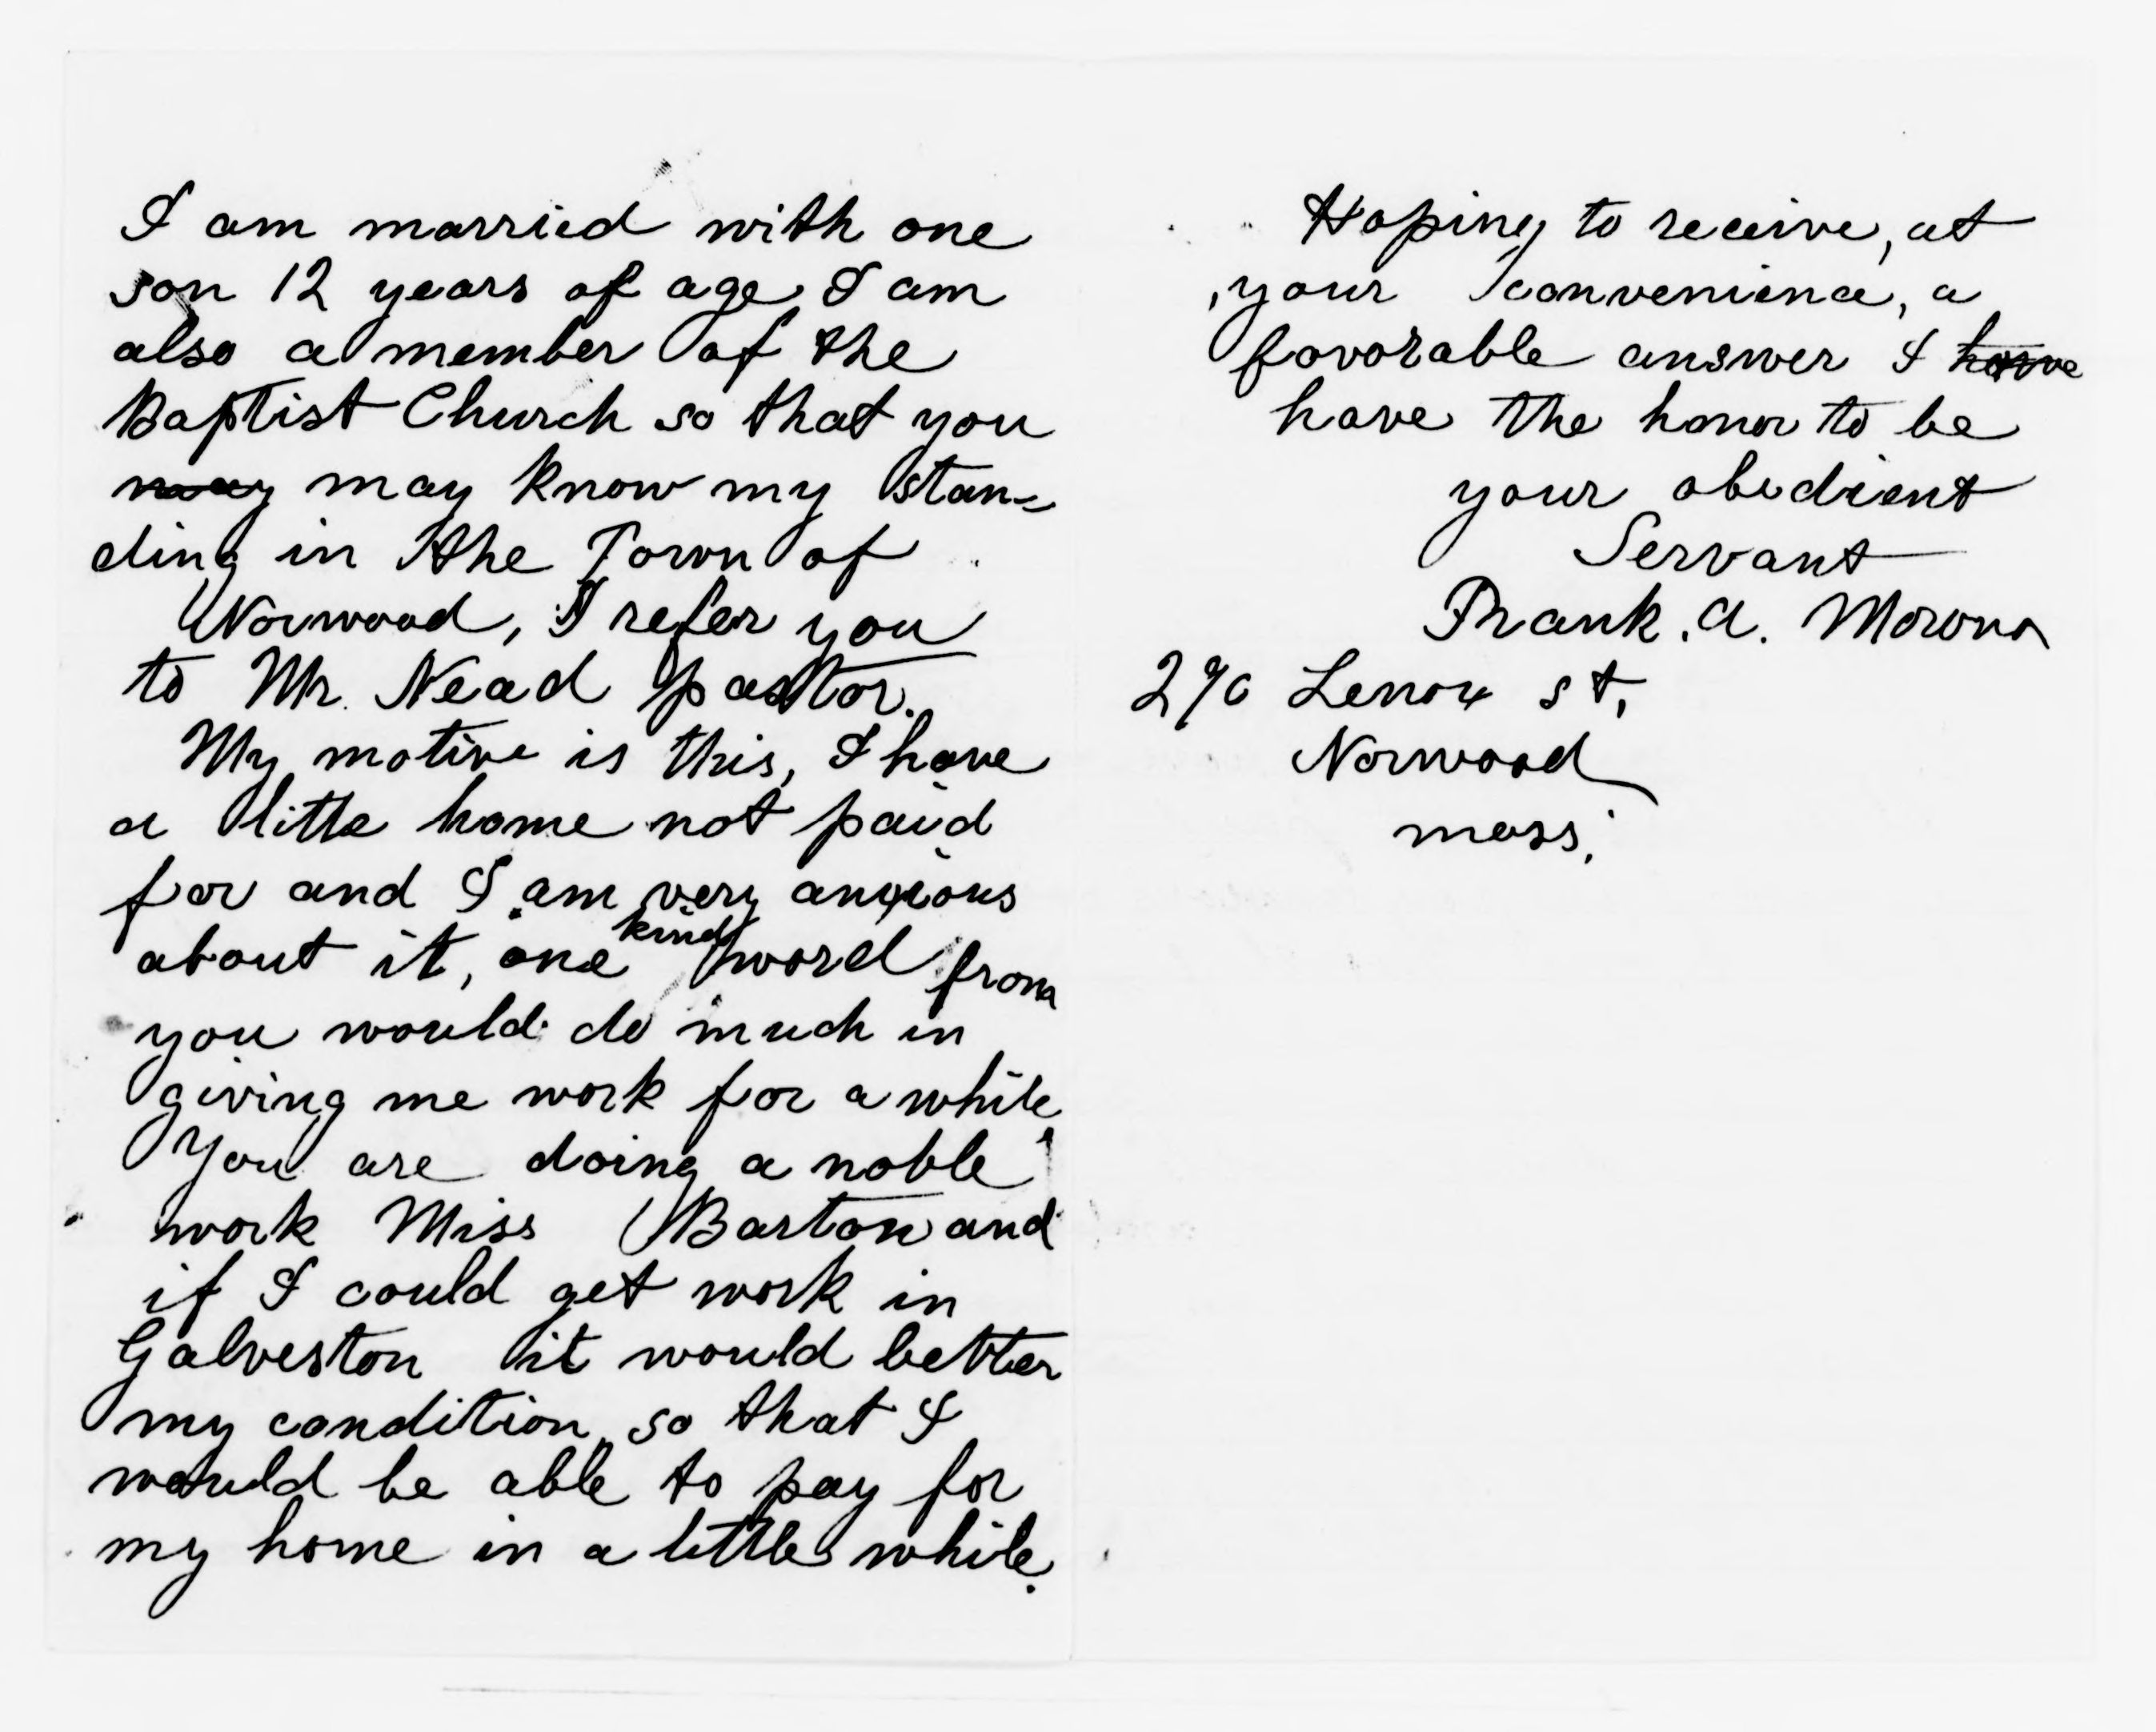 I am married with one
son 12 years of age, I am
also a member of the
Baptist Church so that you
may may know my stan-
ding in the Town of
Norwood, I refer you
to Mr. Nead pastor.
My motive is this, I have
a little home not paid
for and I am very anxious
about it, one kind word from
you would do much in
giving me work for a while,
You are doing a noble
work Miss Barton and
if I could get work in
Galveston it would better
my condition, so that I
would be able to pay for
my home in a little while.
Hoping to receive, at
your convenience, a
favorable answer I have
have the honor to be
your obedient
Servant
Frank. A.
Lenox st,
Norwood
mass.